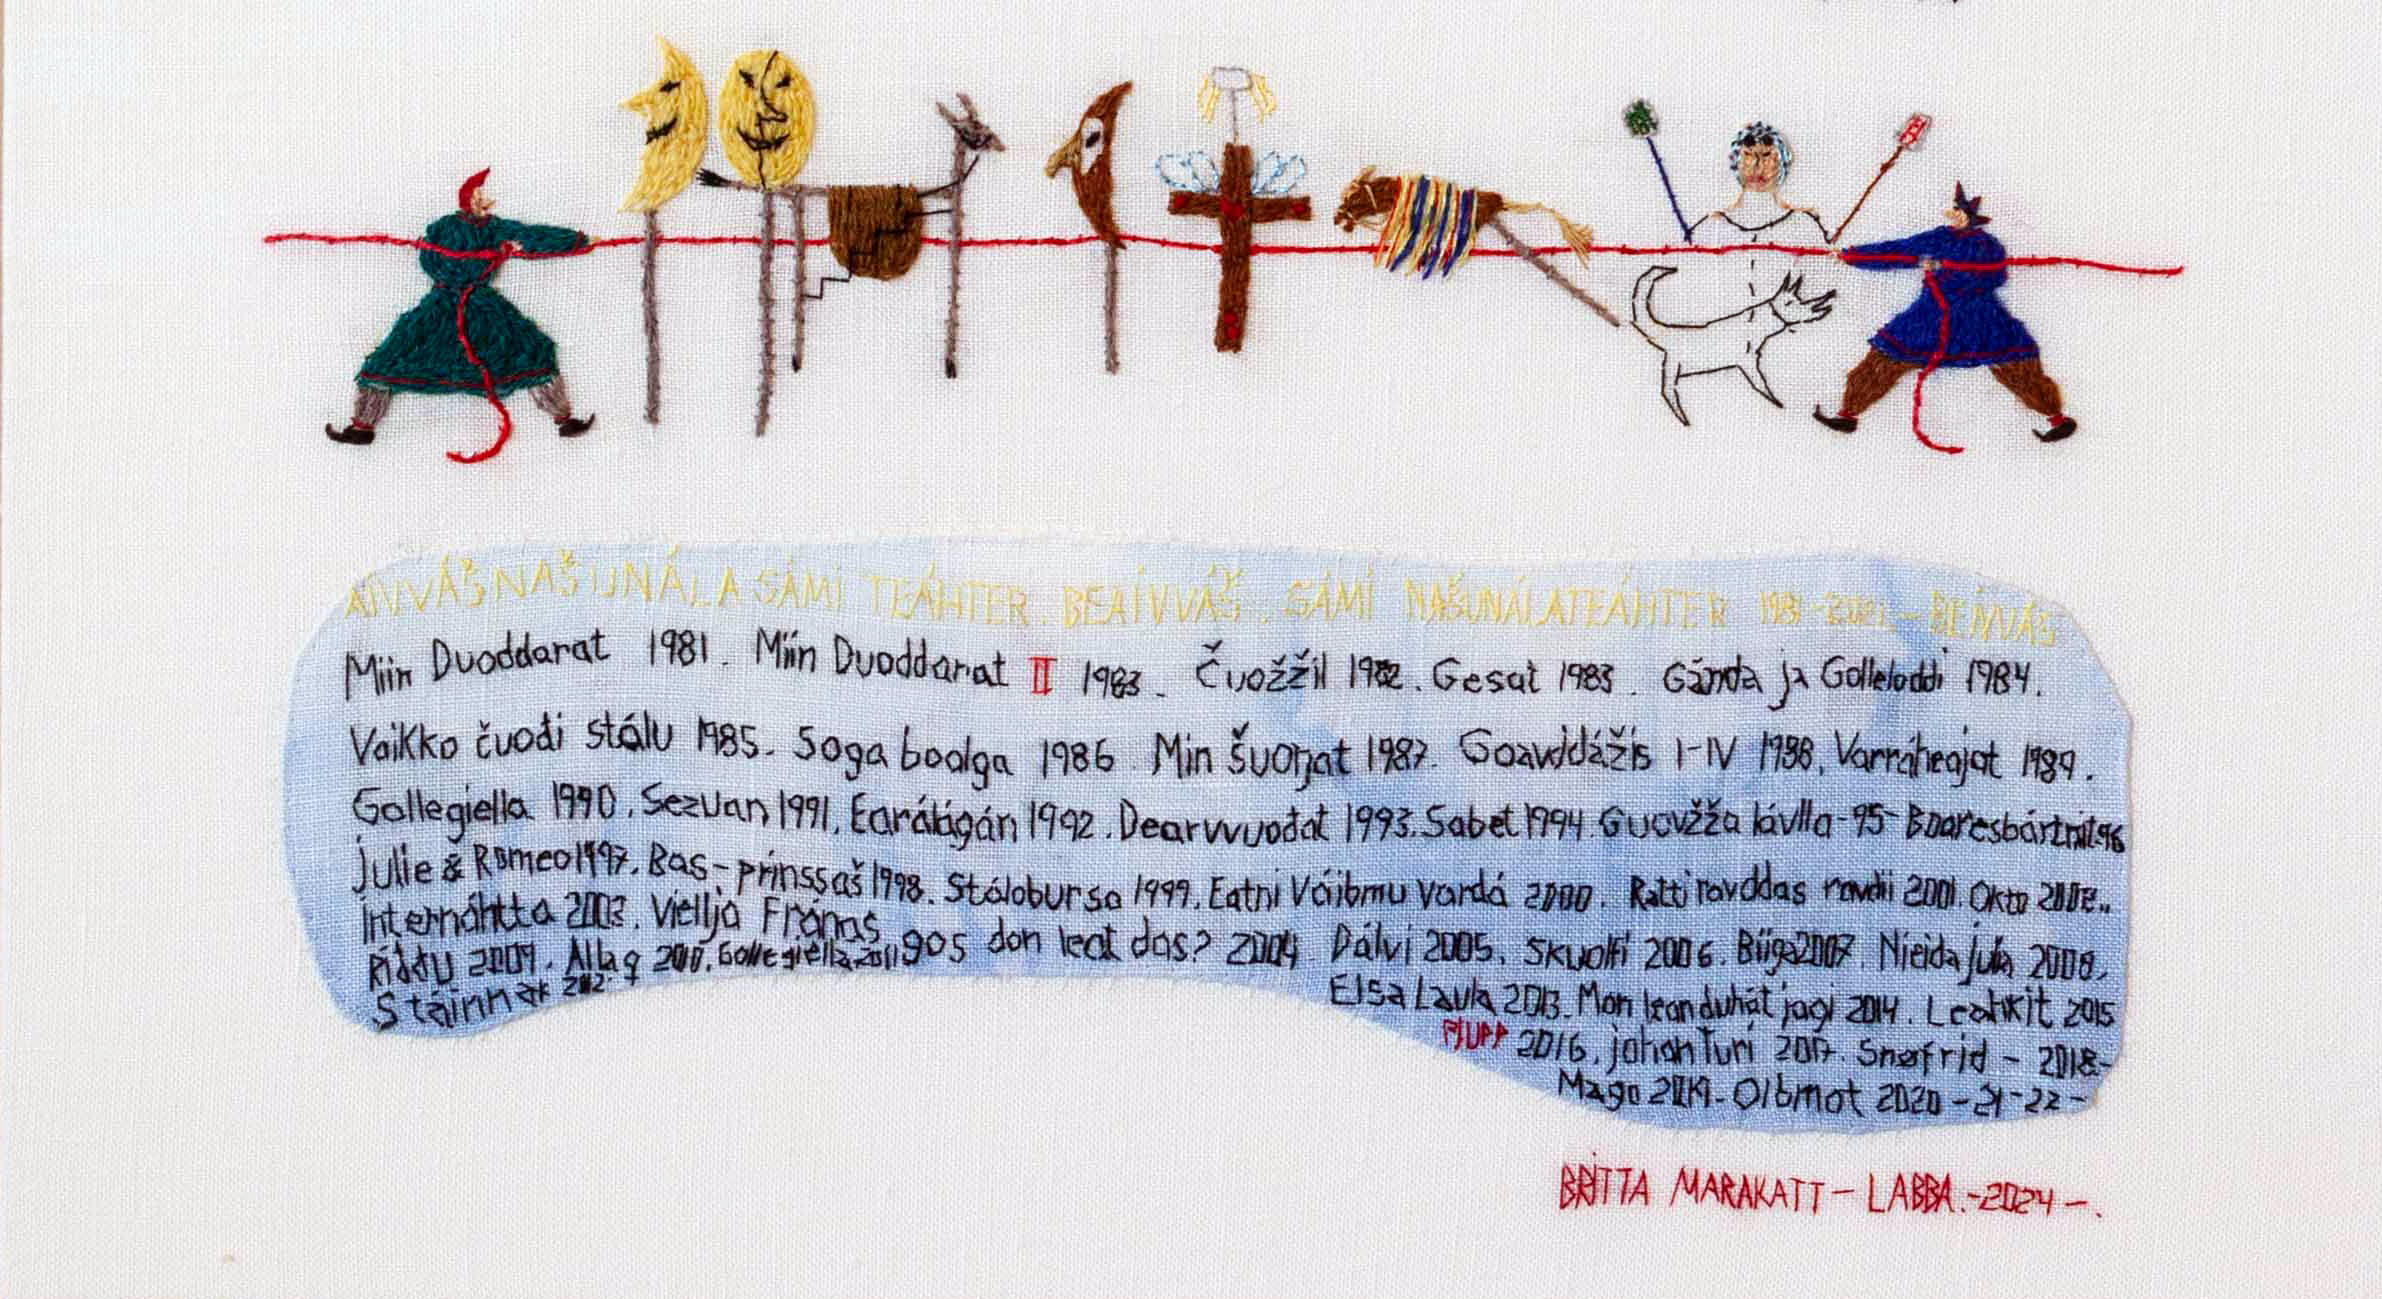 AIVVÁŠ NAŠUNÁLA SÁMI TEÁHTER. BEAIVVÁŠ. SÁMI NAŠUNÁLATEÁHTER 1981-2021 - BEIVVÁŠ
Miin Duoddarat 1981. Miin Duoddarat II 1983. Čuožžil 1982. Gesat 1983. Gánda ja Golleloddi 1984.
Vaikko čuođi stálu 1985. Soga boalga 1986. Min Šuoŋat 1987. Goavddážis I-IV 1988. Varráheajat 1989.
Gollegiella 1990. Sezuan 1991. Earálágán 1992. Dearvvuođat 1993. Sabet 1994. Guovžža lávlla-95- Boaresbártnit-96
Julie & Romeo 1997. Bas-prinssaš 1998. Stáloбursa 1999. Eatni Váibmu Vardá 2000. Rátti ravddas ravdii 2001. Okto 2002..
internáhtta 2003. Viellja Fránas gos don leat das? 2004. Dálvi 2005. Skuolfi 2006. Biiga 2007. Nieida Jula 2008,
Riđđu 2009. Allag 2010. Gollegiella 2011
Stáinnak 2012. Elsa Laula 2013. Mon lean duhát jagi 2014. Leahkit 2015
PJUPP 2016. Johan Turi 2017. Snøfrid - 2018-
Mago 2019. Olbmot 2020 - 21-22-
BRITTA MARAKATT - LABBA.-2024-.